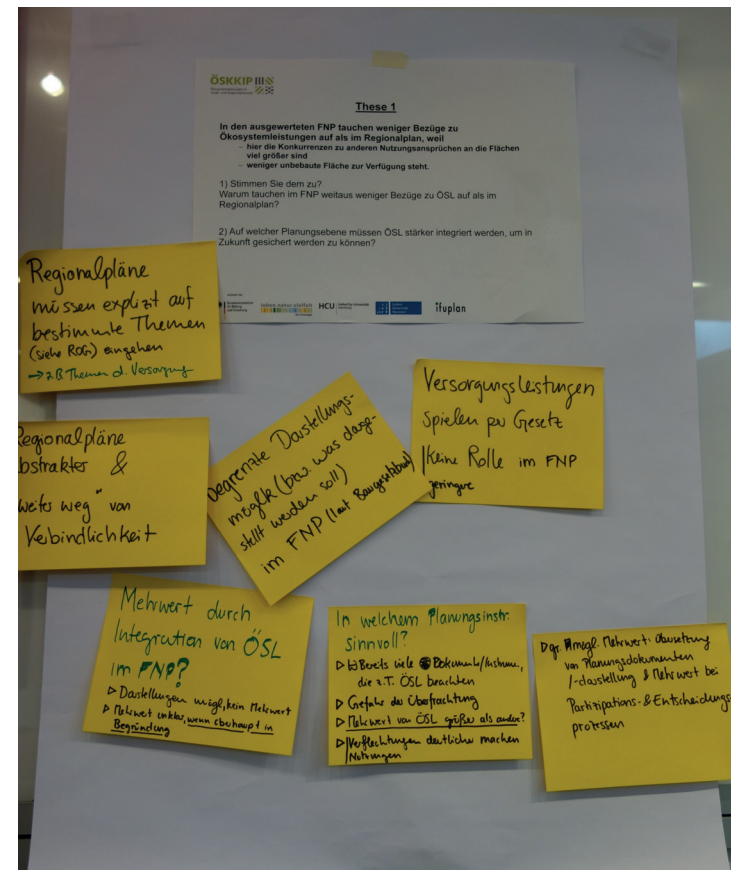 ÖSKKIP
These 1
In den ausgewerteten FNP tauchen weniger Bezüge zu
Ökosystemleistungen auf als im Regionalplan, weil
– hier die Konkurrenzen zu anderen Nutzungsansprüchen an die Flächen
viel größer sind
– weniger unbebaute Fläche zur Verfügung steht.
1) Stimmen Sie dem zu?
Warum tauchen im FNP weitaus weniger Bezüge zu ÖSL auf als im
Regionalplan?
2) Auf welcher Planungsebene müssen ÖSL stärker integriert werden, um in
Zukunft gesichert werden zu können?
leben.natur.vielfalt
HCU
ifuplan
Regionalpläne
müssen explizit auf
bestimmte Themen
(siehe ROG) eingehen
→ z.B. Themen d. Versorgung
Regionalpläne
abstrakter &
weiter weg" von
Verbindlichkeit
Begrenzte Darstellungs-
möglk (bzw. was darge-
stellt werden soll)
im FNP (laut Baugesetzbuch)
Versorgungsleistungen
spielen per Gesetz
Keine Rolle im FNP
geringere
Mehrwert durch
Integration von ÖSL
im FNP?
▷ Darstellungen mögl, kein Mehrwert
▷ Mehrwert unklar, wenn überhaupt in
Begründung
In welchem Planungsinstr.
sinnvoll?
▷ Bereits viele Dokumente/Instrume,
die z.T. ÖSL beachten
▷ Gefahr der Überfrachtung
▷ Mehrwert von ÖSL größer als andere?
▷ Verflechtungen deutlicher machen
Nutzungen
▷ gr. mögl. Mehrwert: Übersetzung
von Planungsdokumenten
/-darstellung & Mehrwert bei
Partizipations- & Entscheidungs-
prozessen